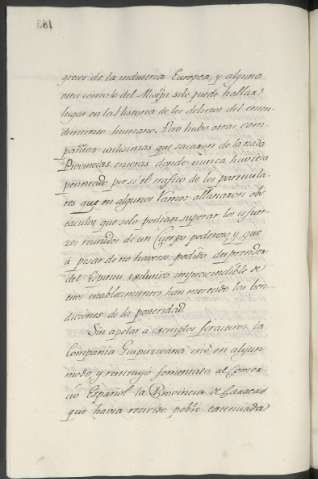 183
gresos de la industria Europea, y alguna
como la del solo puede hallar
lugar en la historia de los delirios del enten-
dimiento humano. Pero hubo otras com-
pañias utilisimas que sacaron de la nada
Provincias enteras donde nunca huviera
penetrado por si el trafico de los particula-
res que en algunos ramos allanaron obs-
taculos que solo podian superar los esfuer-
zos reunidos de un Cuerpo poderoso y que
a pesar de no haverse podido desprender
del espiritu exclusivo de
sus establecimientos han merecido las ben-
diciones de la posteridad.
Sin apelar a exemplos la
Compañia Guipuzcoana crió en algun
modo, y restituyó fomentada al Comer-
cio Español la Provincia de Caracas
que havia recivido pobre, extenuada,